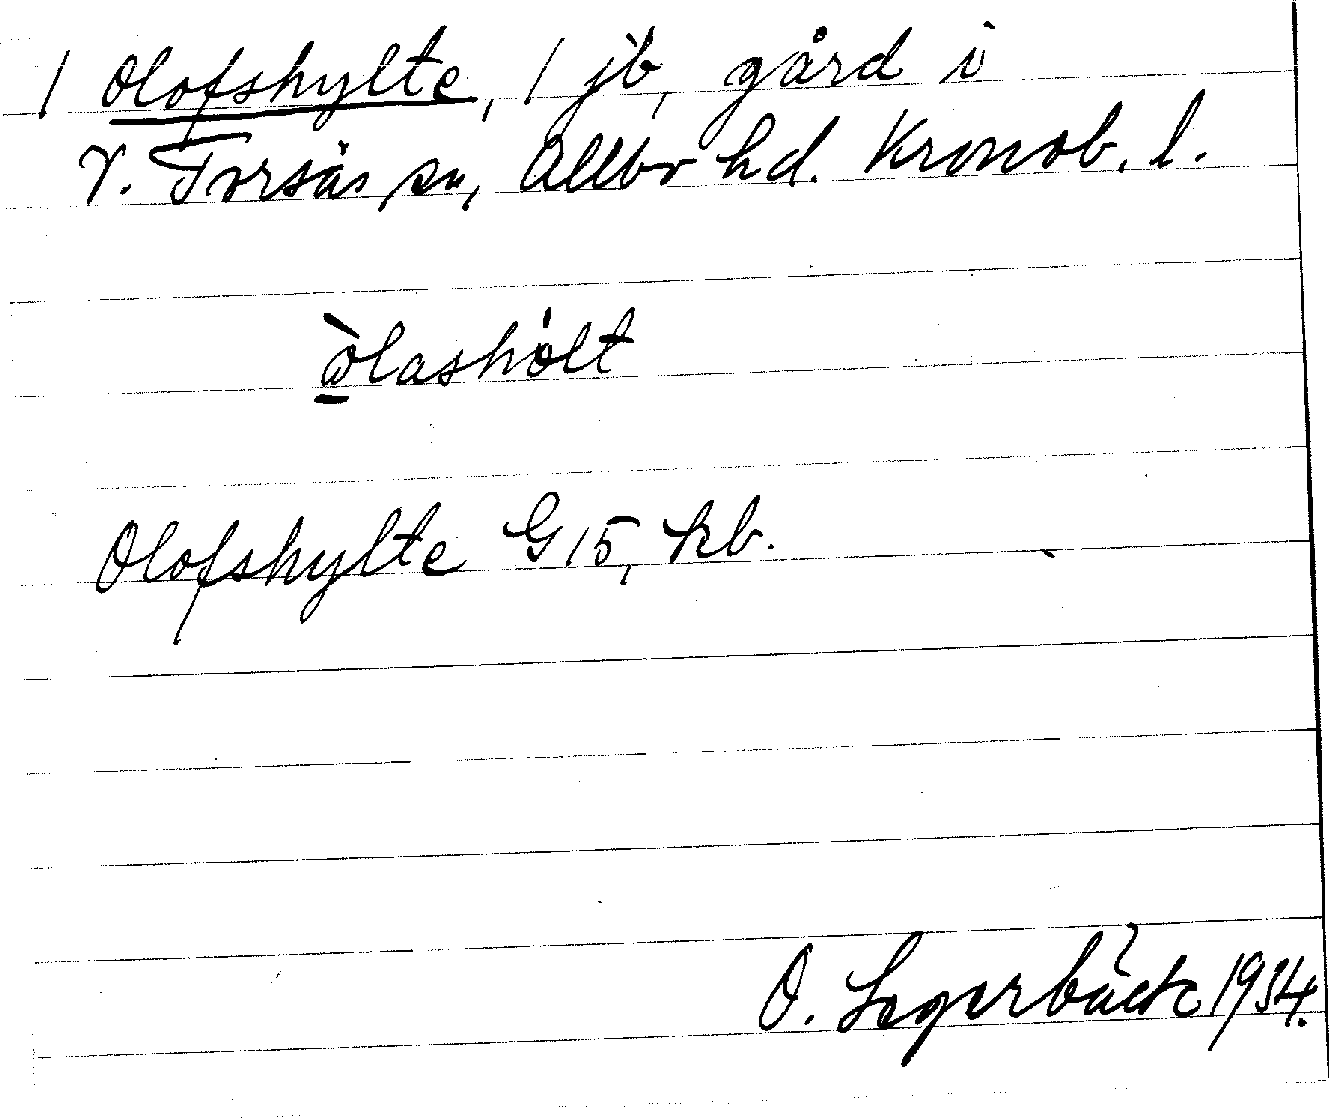 / Olofshylte, / jb, gård i
V. Torsås sn, Allbo hd. Kronob. l.
òlashölt
Olofshylte G 15, kb.
O. Lagerbäck 1934.